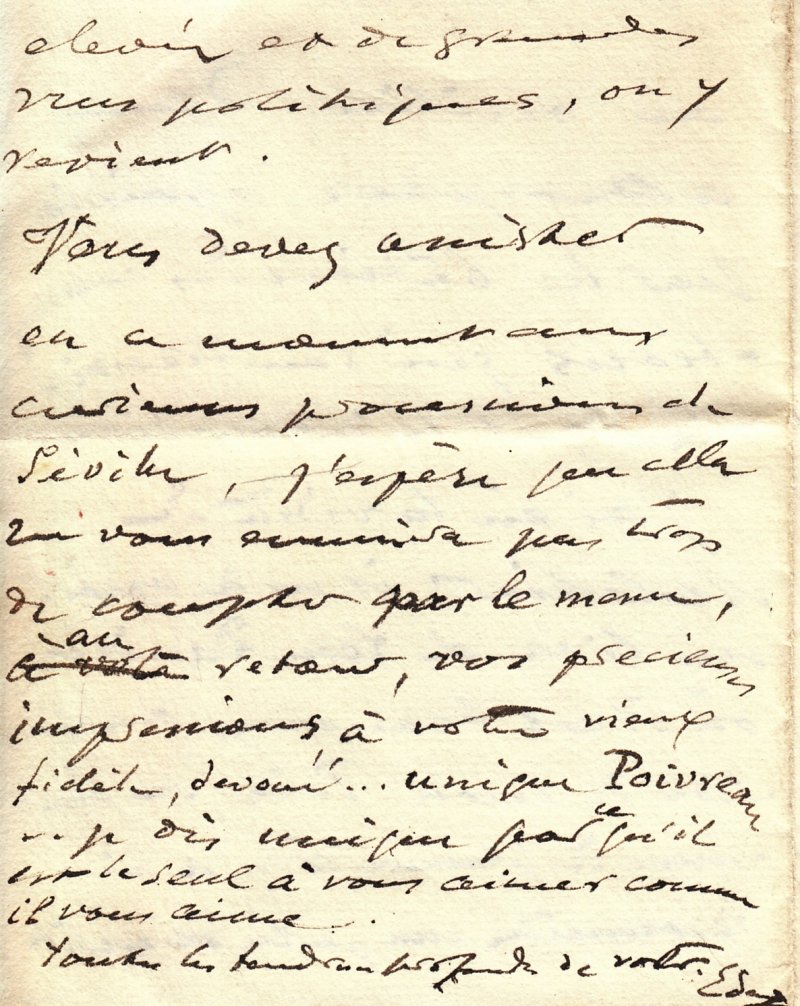 et de grandes
vues politiques, on y
revient.
Vous devez assister
en ce moment aux
curieuses processions de
Séville, j'espère que cela
ne vous ennuiera pas trop
de compter par le menu,
à votre au retour, vos précieuses
impressions, à votre vieux
fidèle, dévoué... unique Poivreau
... je dis unique parce qu'il
est le seul à vous aimer comme
il vous aime.
Toutes les tendresses profondes de votre.